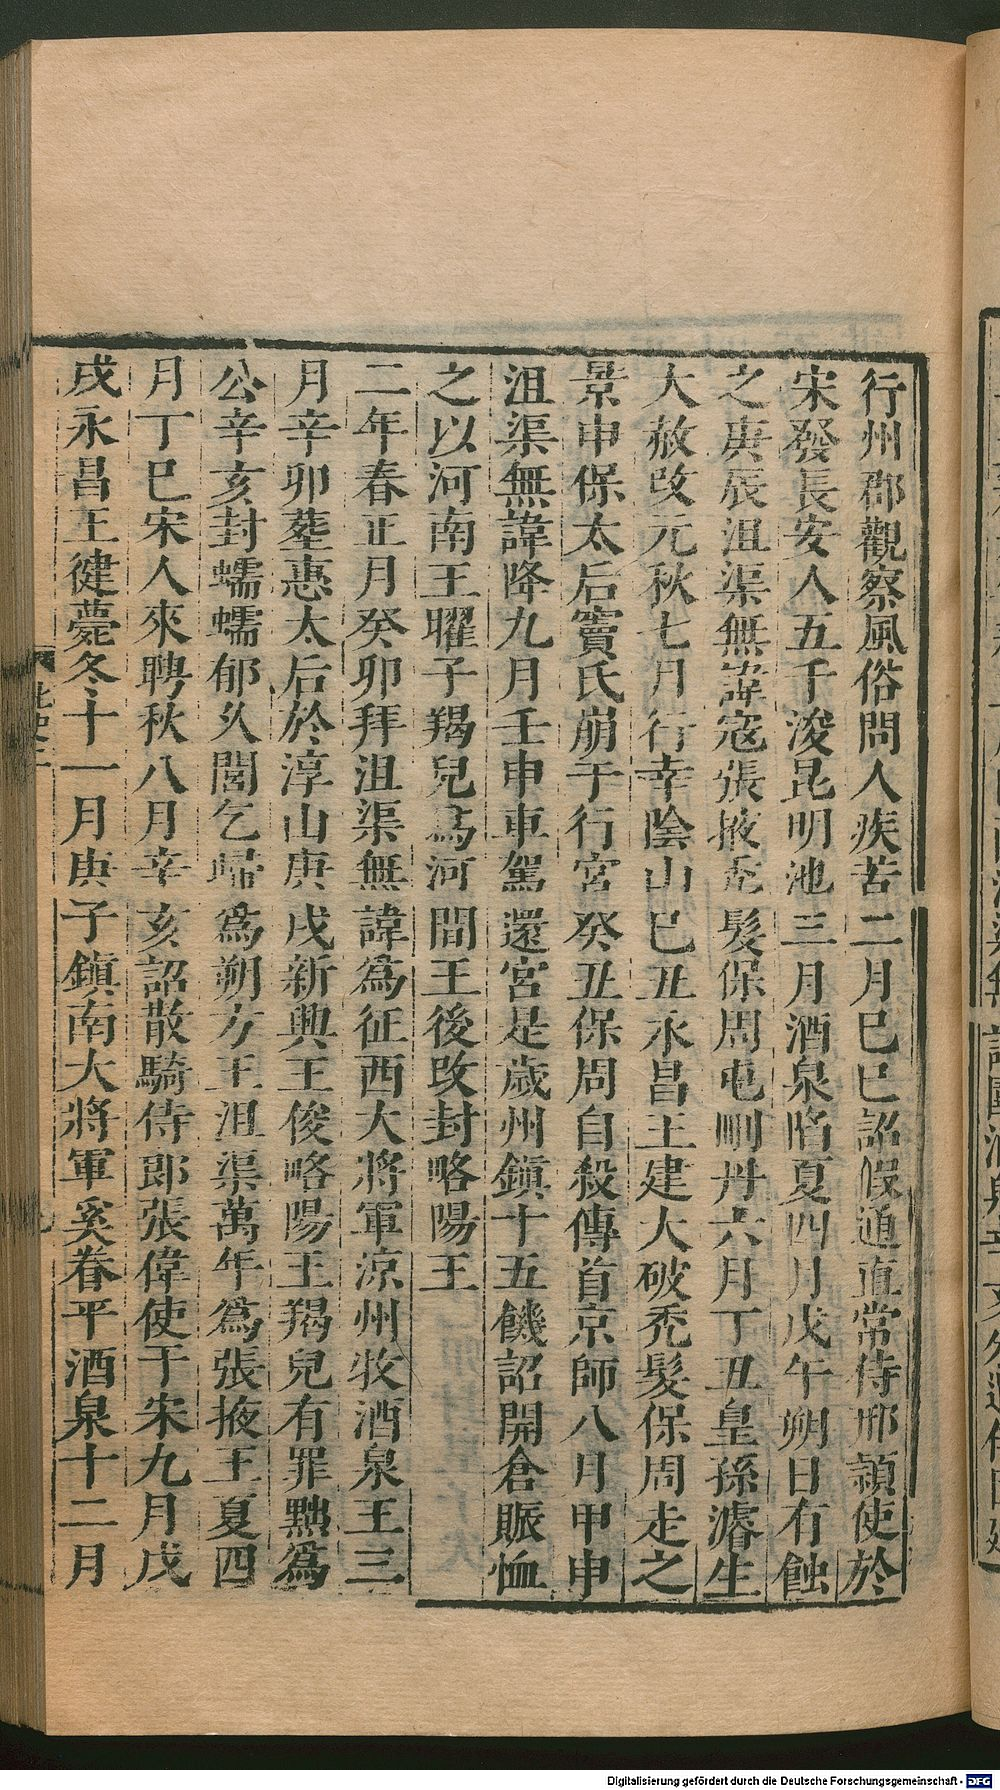 行州郡觀察風俗問人疾苦二月巳巳詔假通直常侍邢潁使於
宋發長安人五千浚昆明池三月酒泉陷夏四月戊午朔日有蝕
之庚辰沮渠無諱寇張掖禿髮保周屯刪丹六月丁丑皇孫濬生
大赦改元秋七月行幸陰山巳丑永昌王建大破禿髮保周走之
景申保太后竇氏崩于行宮癸丑保周自殺傳首京師八月甲申
沮渠無諱降九月壬申車駕還宮是歲州鎮十五饑詔開倉賑恤
之以河南王曜子羯兒爲河間王後改封略陽王
二年春正月癸卯拜沮渠無諱爲征西大將軍涼州牧酒泉王三
月辛卯塟惠太后於淳山庚戌新興王俊略陽王羯兒有罪黜爲
公辛亥封蠕蠕郁久閭乞歸爲朔方王沮渠萬年爲張掖王夏四
月丁巳宋人來聘秋八月辛亥詔散騎侍郎張偉使于宋九月戊
戌永昌王健薨冬十一月庚子鎮南大將軍奚眷平酒泉十二月
北史二
九
Digitalisierung gefördert durch die Deutsche Forschungsgemeinschaft - DFG